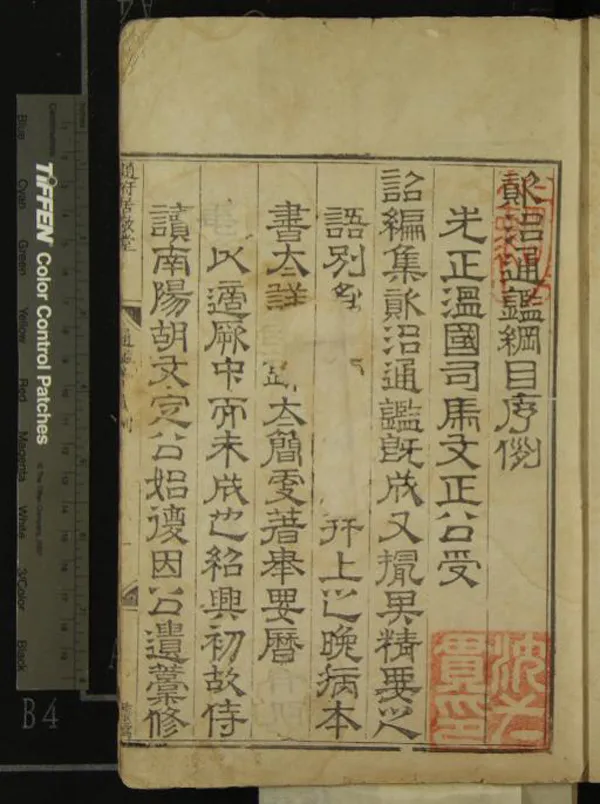 資治通鑑綱目序例
先正溫國司馬文正公受
詔編集資治通鑑旣成又撮其精要之
語別 并上之晚病本
書太詳 太簡更著舉要曆
以適厥中而未成也紹興初故侍
讀南陽胡文定公始復因公遺藁修
趙府居敬堂
TIFFEN Color Control Patches
Blue Cyan Green Yellow Red Magenta White 3/Color Black
B4